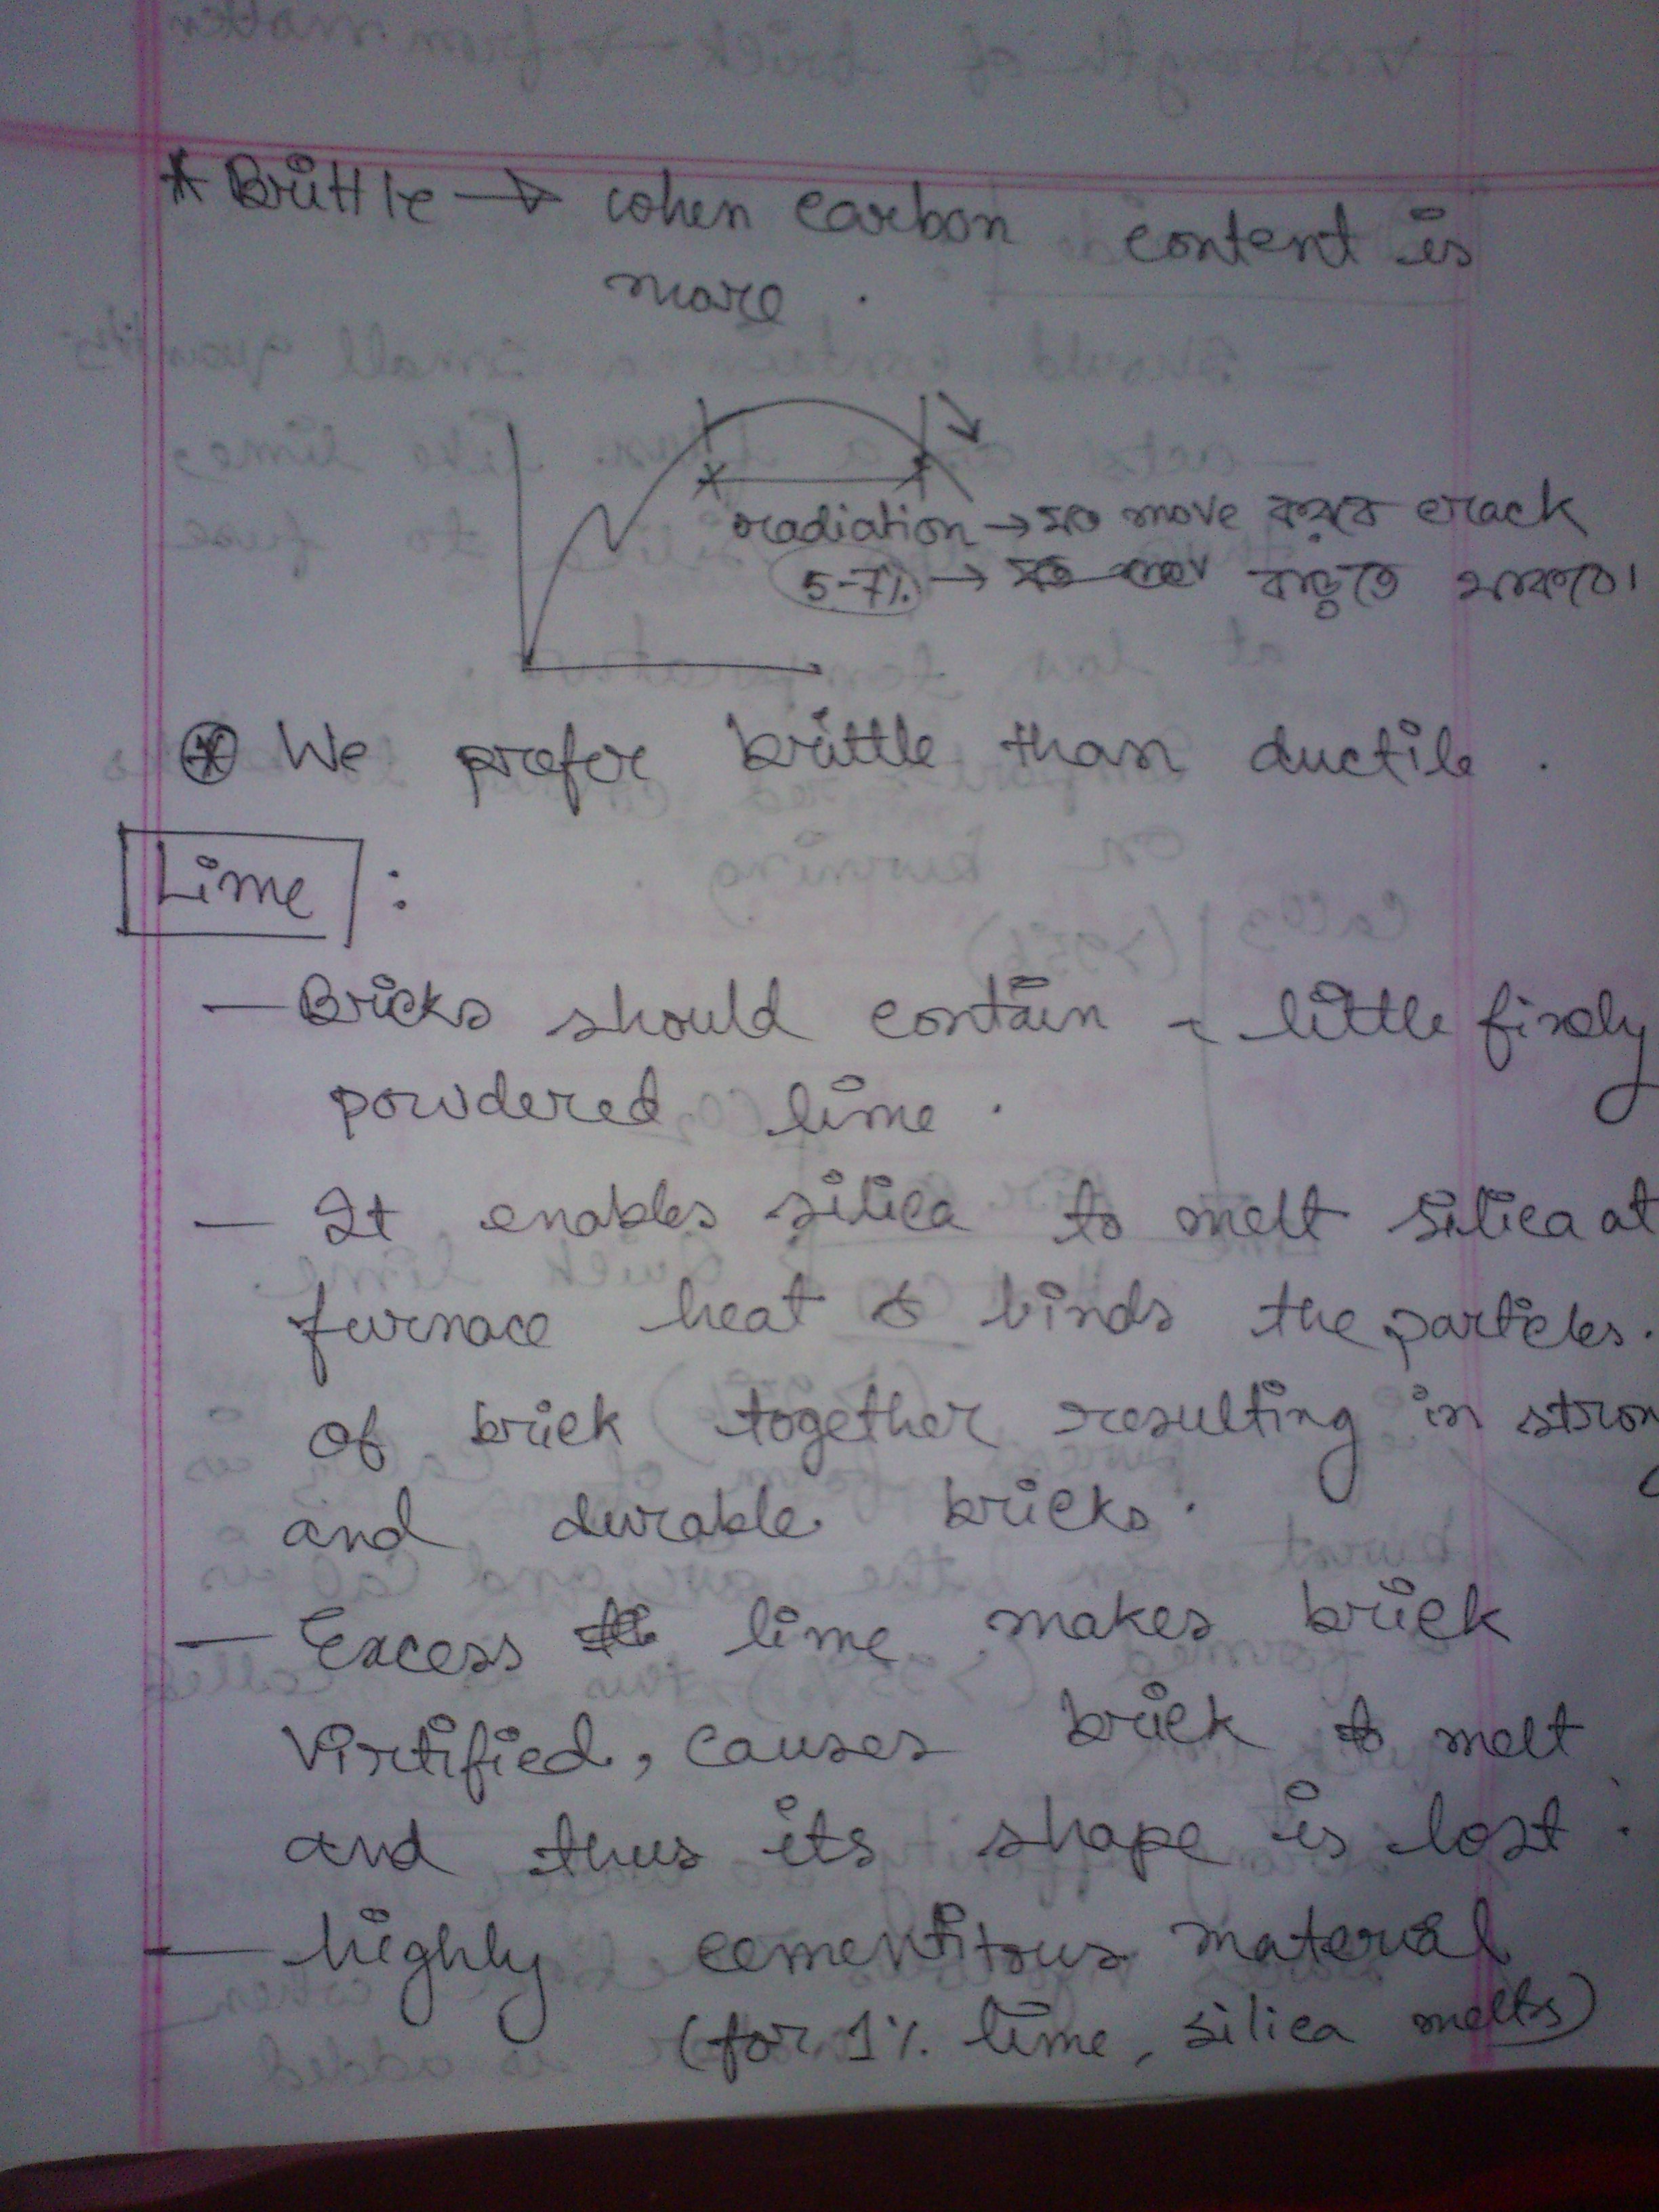 * Brittle → when carbon content is
more .
radiation → যত move করবে crack
5-7% → বাড়তে থাকবে।
⊛ We prefer brittle than ductile .
Lime :
— Bricks should contain a little finely
powdered lime .
— It enables silica to melt silica at
furnace heat & binds the particles.
of brick together resulting in strong
and durable bricks .
— Excess lime makes brick
Virtified, causes brick to melt
and thus its shape is lost .
— highly cementitous material
(for 1% lime, silica melts)